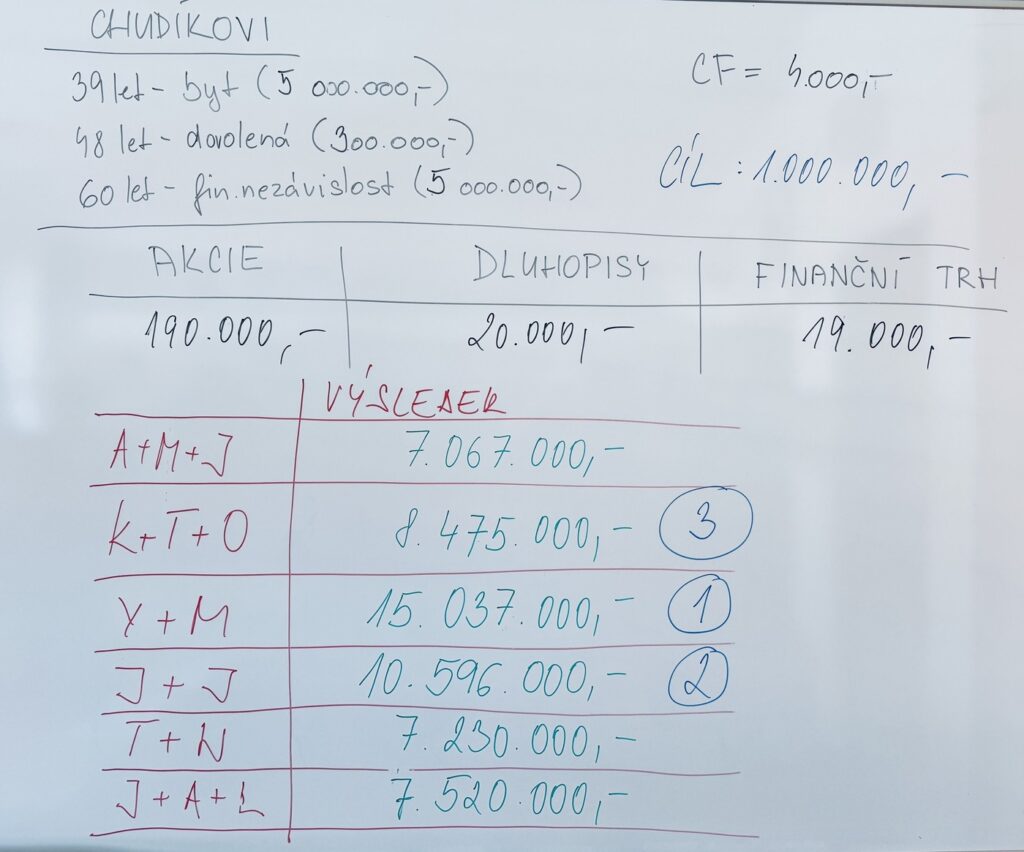 CHUDÍKOVI
39 let - byt (5 000.000,-)
48 let - dovolená (300.000,-)
60 let - fin. nezávislost (5 000.000,-)
CF = 4.000,-
CÍL : 1.000.000,-
AKCIE DLUHOPISY FINANČNÍ TRH
190.000,- 20.000,- 19.000,-
VÝSLEDEK
A+M+J 7.067.000,-
K+T+O 8.475.000,- 3
Y+M 15.037.000,- 1
J+J 10.596.000,- 2
T+W 7.230.000,-
J+A+L 7.520.000,-